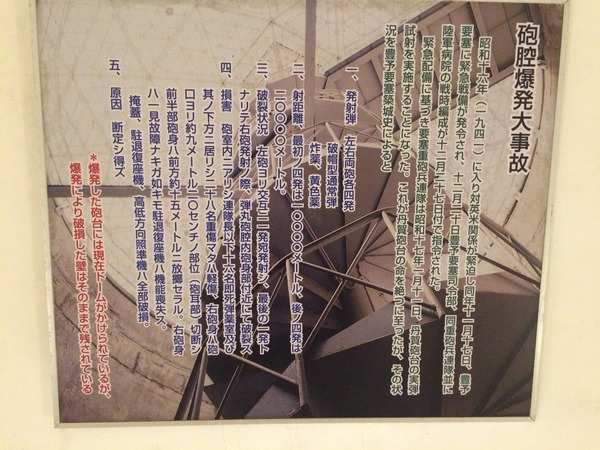 砲腔爆発大事故
昭和十六年（一九四一）に入り対英米関係が緊迫し同年十一月十七日、豊予
要塞に緊急戦備が発令され、十二月二十日豊予要塞司令部、同重砲兵連隊並に
陸軍病院の戦時編成が十二月二十七日付で指令された。
緊急配備に基づき要塞重砲兵連隊は昭和十七年一月十一日、丹賀砲台の実弾
試射を実施することになった。これが丹賀砲台の命を絶つに至ったが、その状
況を豊予要塞築城史によると
一、発射弾　左右両砲各四発
破帽型通常弾
炸薬、黄色薬
二、射距離、最初ノ四発は一〇〇〇〇メートル、後ノ四発は
二〇〇〇〇メートル。
三、破裂状況　左砲ヨリ交互ニ一発宛発射シ、最後の一発ト
ナリテ右砲発射ノ際、弾丸砲腔内砲身部付近にて破裂ス
四、損害　砲室内ニアリシ連隊長以下十六名即死弾薬室及び
其ノ下方ニ居リシ二十八名重傷又ハ軽傷、右砲身ハ砲
口ヨリ約九メートル二〇センチノ部位（砲耳部）切断シ
前半部砲身ハ前方約十五メートルニ放擲セラル。右砲身
ハ一見故障ナキガ如キモ駐退復座機ハ機能喪失ス。
掩蓋、駐退復座機、高低方向照準機ハ全部破損。
五、原因　断定シ得ズ
＊爆発した砲台には現在ドームがかけられているが、
爆発により破損した壁はそのままで残されている